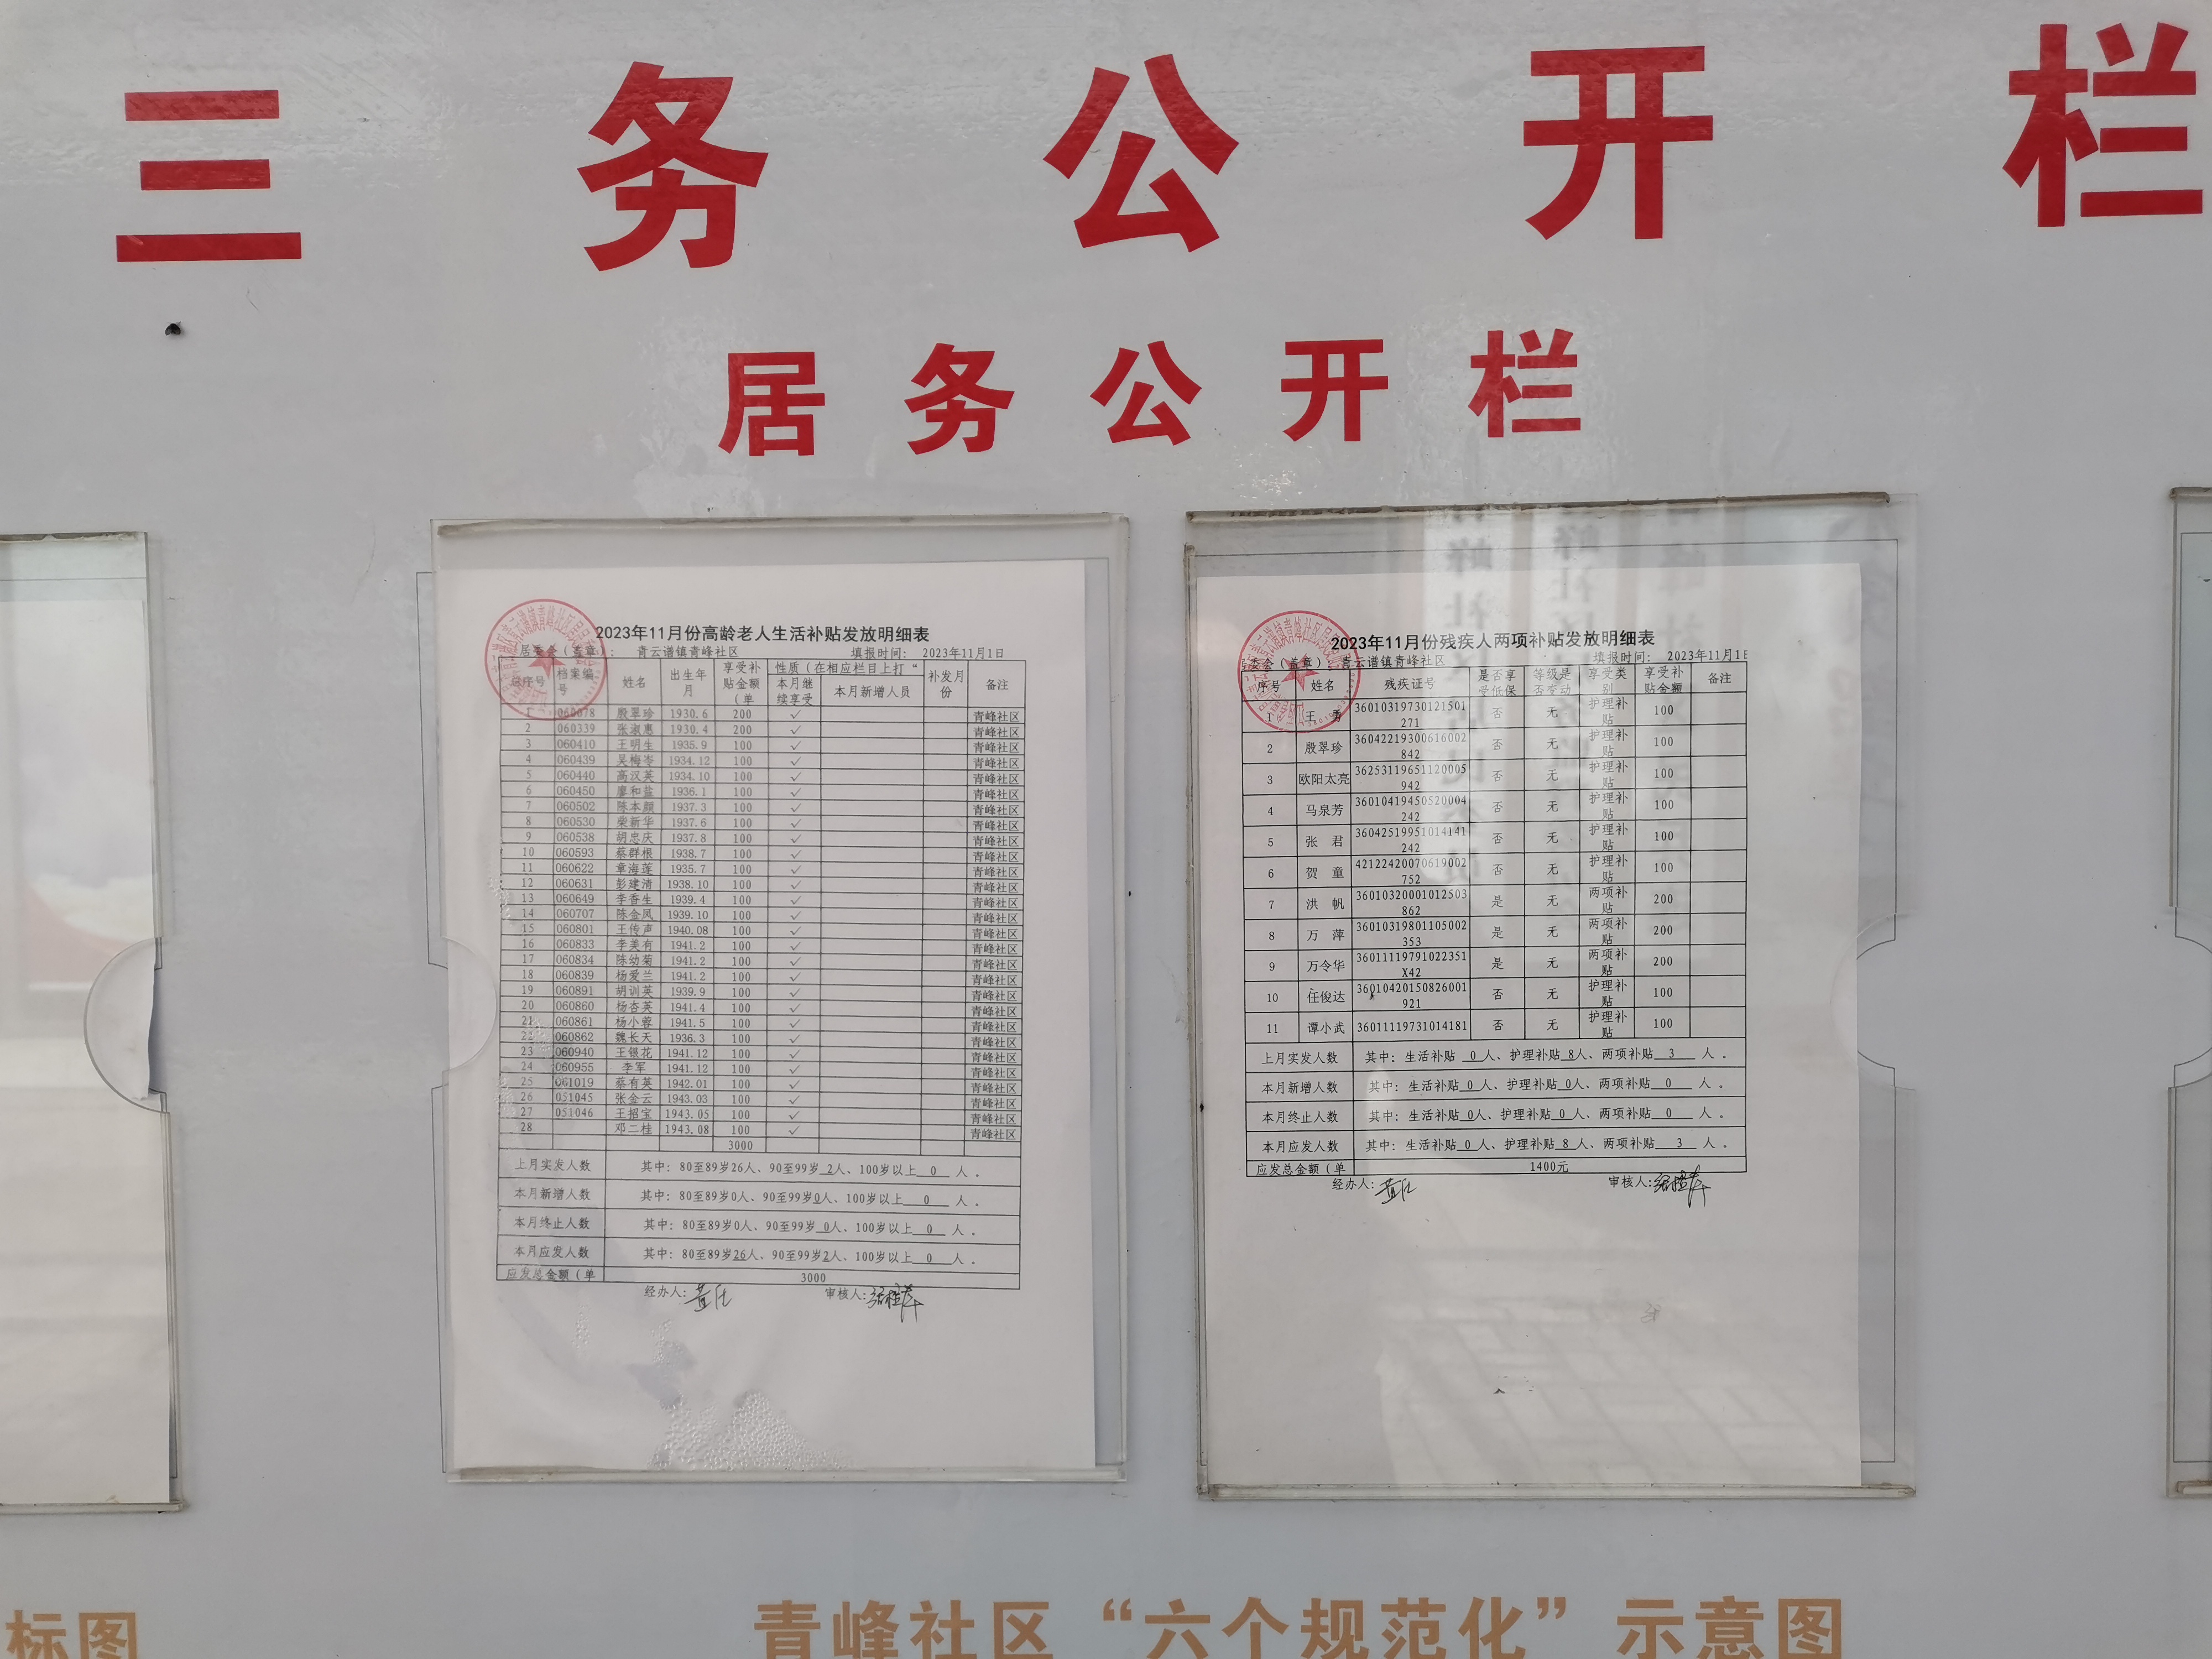 三务公开栏
居务公开栏
2023年11月份高龄老人生活补贴发放明细表
居委会（盖章）： 青云谱镇青峰社区 填报时间： 2023年11月1日
总序号 档案编号 姓名 出生年月 享受补贴金额（单 性质（在相应栏目上打“ 补发月份 备注
本月继续享受 本月新增人员
1 060078 殷翠珍 1930.6 200 ✓ 青峰社区
2 060339 张淑惠 1930.4 200 ✓ 青峰社区
3 060410 王明生 1935.9 100 ✓ 青峰社区
4 060439 吴梅岑 1934.12 100 ✓ 青峰社区
5 060440 高汉英 1934.10 100 ✓ 青峰社区
6 060450 廖和盐 1936.1 100 ✓ 青峰社区
7 060502 陈本颜 1937.3 100 ✓ 青峰社区
8 060530 柴新华 1937.6 100 ✓ 青峰社区
9 060538 胡忠庆 1937.8 100 ✓ 青峰社区
10 060593 蔡群根 1938.7 100 ✓ 青峰社区
11 060622 章海莲 1935.7 100 ✓ 青峰社区
12 060631 彭建清 1938.10 100 ✓ 青峰社区
13 060649 李香生 1939.4 100 ✓ 青峰社区
14 060707 陈金凤 1939.10 100 ✓ 青峰社区
15 060801 王传声 1940.08 100 ✓ 青峰社区
16 060833 李美有 1941.2 100 ✓ 青峰社区
17 060834 陈幼菊 1941.2 100 ✓ 青峰社区
18 060839 杨爱兰 1941.2 100 ✓ 青峰社区
19 060891 胡训英 1939.9 100 ✓ 青峰社区
20 060860 杨杏英 1941.4 100 ✓ 青峰社区
21 060861 杨小蓉 1941.5 100 ✓ 青峰社区
22 060862 魏长天 1936.3 100 ✓ 青峰社区
23 060940 王银花 1941.12 100 ✓ 青峰社区
24 060955 李军 1941.12 100 ✓ 青峰社区
25 061019 蔡有英 1942.01 100 ✓ 青峰社区
26 051045 张金云 1943.03 100 ✓ 青峰社区
27 051046 王招宝 1943.05 100 ✓ 青峰社区
28 邓二桂 1943.08 100 ✓ 青峰社区
3000
上月实发人数 其中：80至89岁26人、90至99岁 2人、100岁以上 0 人 。
本月新增人数 其中：80至89岁0人、90至99岁0人、100岁以上 0 人 。
本月终止人数 其中：80至89岁0人、90至99岁 0人、100岁以上 0 人 。
本月应发人数 其中：80至89岁26人、90至99岁2人、100岁以上 0 人 。
应发总金额（单 3000
经办人： 审核人：
2023年11月份残疾人两项补贴发放明细表
居委会（盖章）：青云谱镇青峰社区 填报时间： 2023年11月1日
序号 姓名 残疾证号 是否享受低保 等级是否变动 享受类别 享受补贴金额 备注
1 王 勇 36010319730121501271 否 无 护理补贴 100
2 殷翠珍 36042219300616002842 否 无 护理补贴 100
3 欧阳太亮 36253119651120005942 否 无 护理补贴 100
4 马泉芳 36010419450520004242 否 无 护理补贴 100
5 张 君 36042519951014141242 否 无 护理补贴 100
6 贺 童 42122420070619002752 否 无 护理补贴 100
7 洪 帆 36010320001012503862 是 无 两项补贴 200
8 万 萍 36010319801105002353 是 无 两项补贴 200
9 万令华 36011119791022351X42 是 无 两项补贴 200
10 任俊达 36010420150826001921 否 无 护理补贴 100
11 谭小武 36011119731014181 否 无 护理补贴 100
上月实发人数 其中：生活补贴 0 人、护理补贴 8人、两项补贴 3 人 。
本月新增人数 其中：生活补贴 0 人、护理补贴 0人、两项补贴 0 人 。
本月终止人数 其中：生活补贴 0人、护理补贴 0 人、两项补贴 0 人 。
本月应发人数 其中：生活补贴 0 人、护理补贴 8 人、两项补贴 3 人 。
应发总金额（单 1400元
经办人： 审核人：
标图
青峰社区“六个规范化”示意图